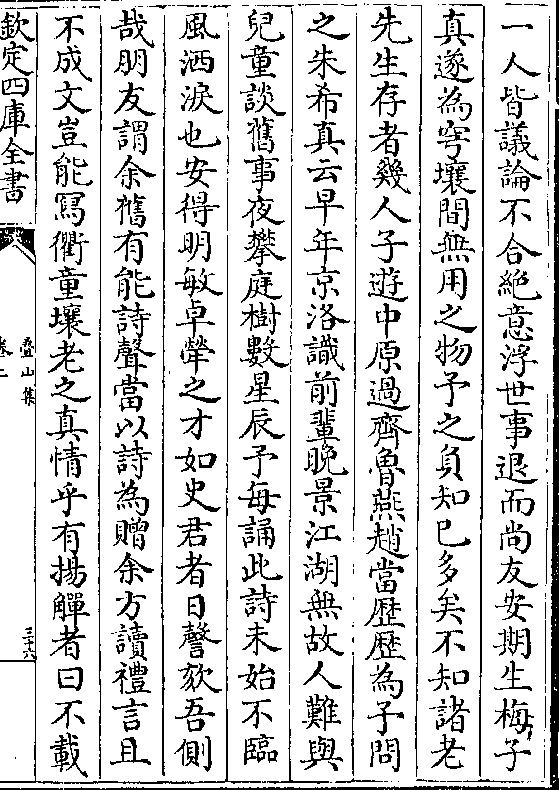 一人皆議論不合絶意浮世事退而尚友安期生梅子
真遂為穹壤間無用之物予之負知己多矣不知諸老
先生存者幾人子遊中原過齊魯燕趙當歴歴為予問
之朱希真云早年京洛識前輩晚景江湖無故人難與
兒童談舊事夜攀庭樹數星辰予每誦此詩未始不臨
風洒淚也安得明敏卓犖之才如史君者日謦欬吾側
哉朋友謂余舊有能詩聲當以詩為贈余方讀禮言且
不成文豈能寫衢童壤老之真情乎有揚觶者曰不載
欽定四庫全書
疊山集
卷二
三十六